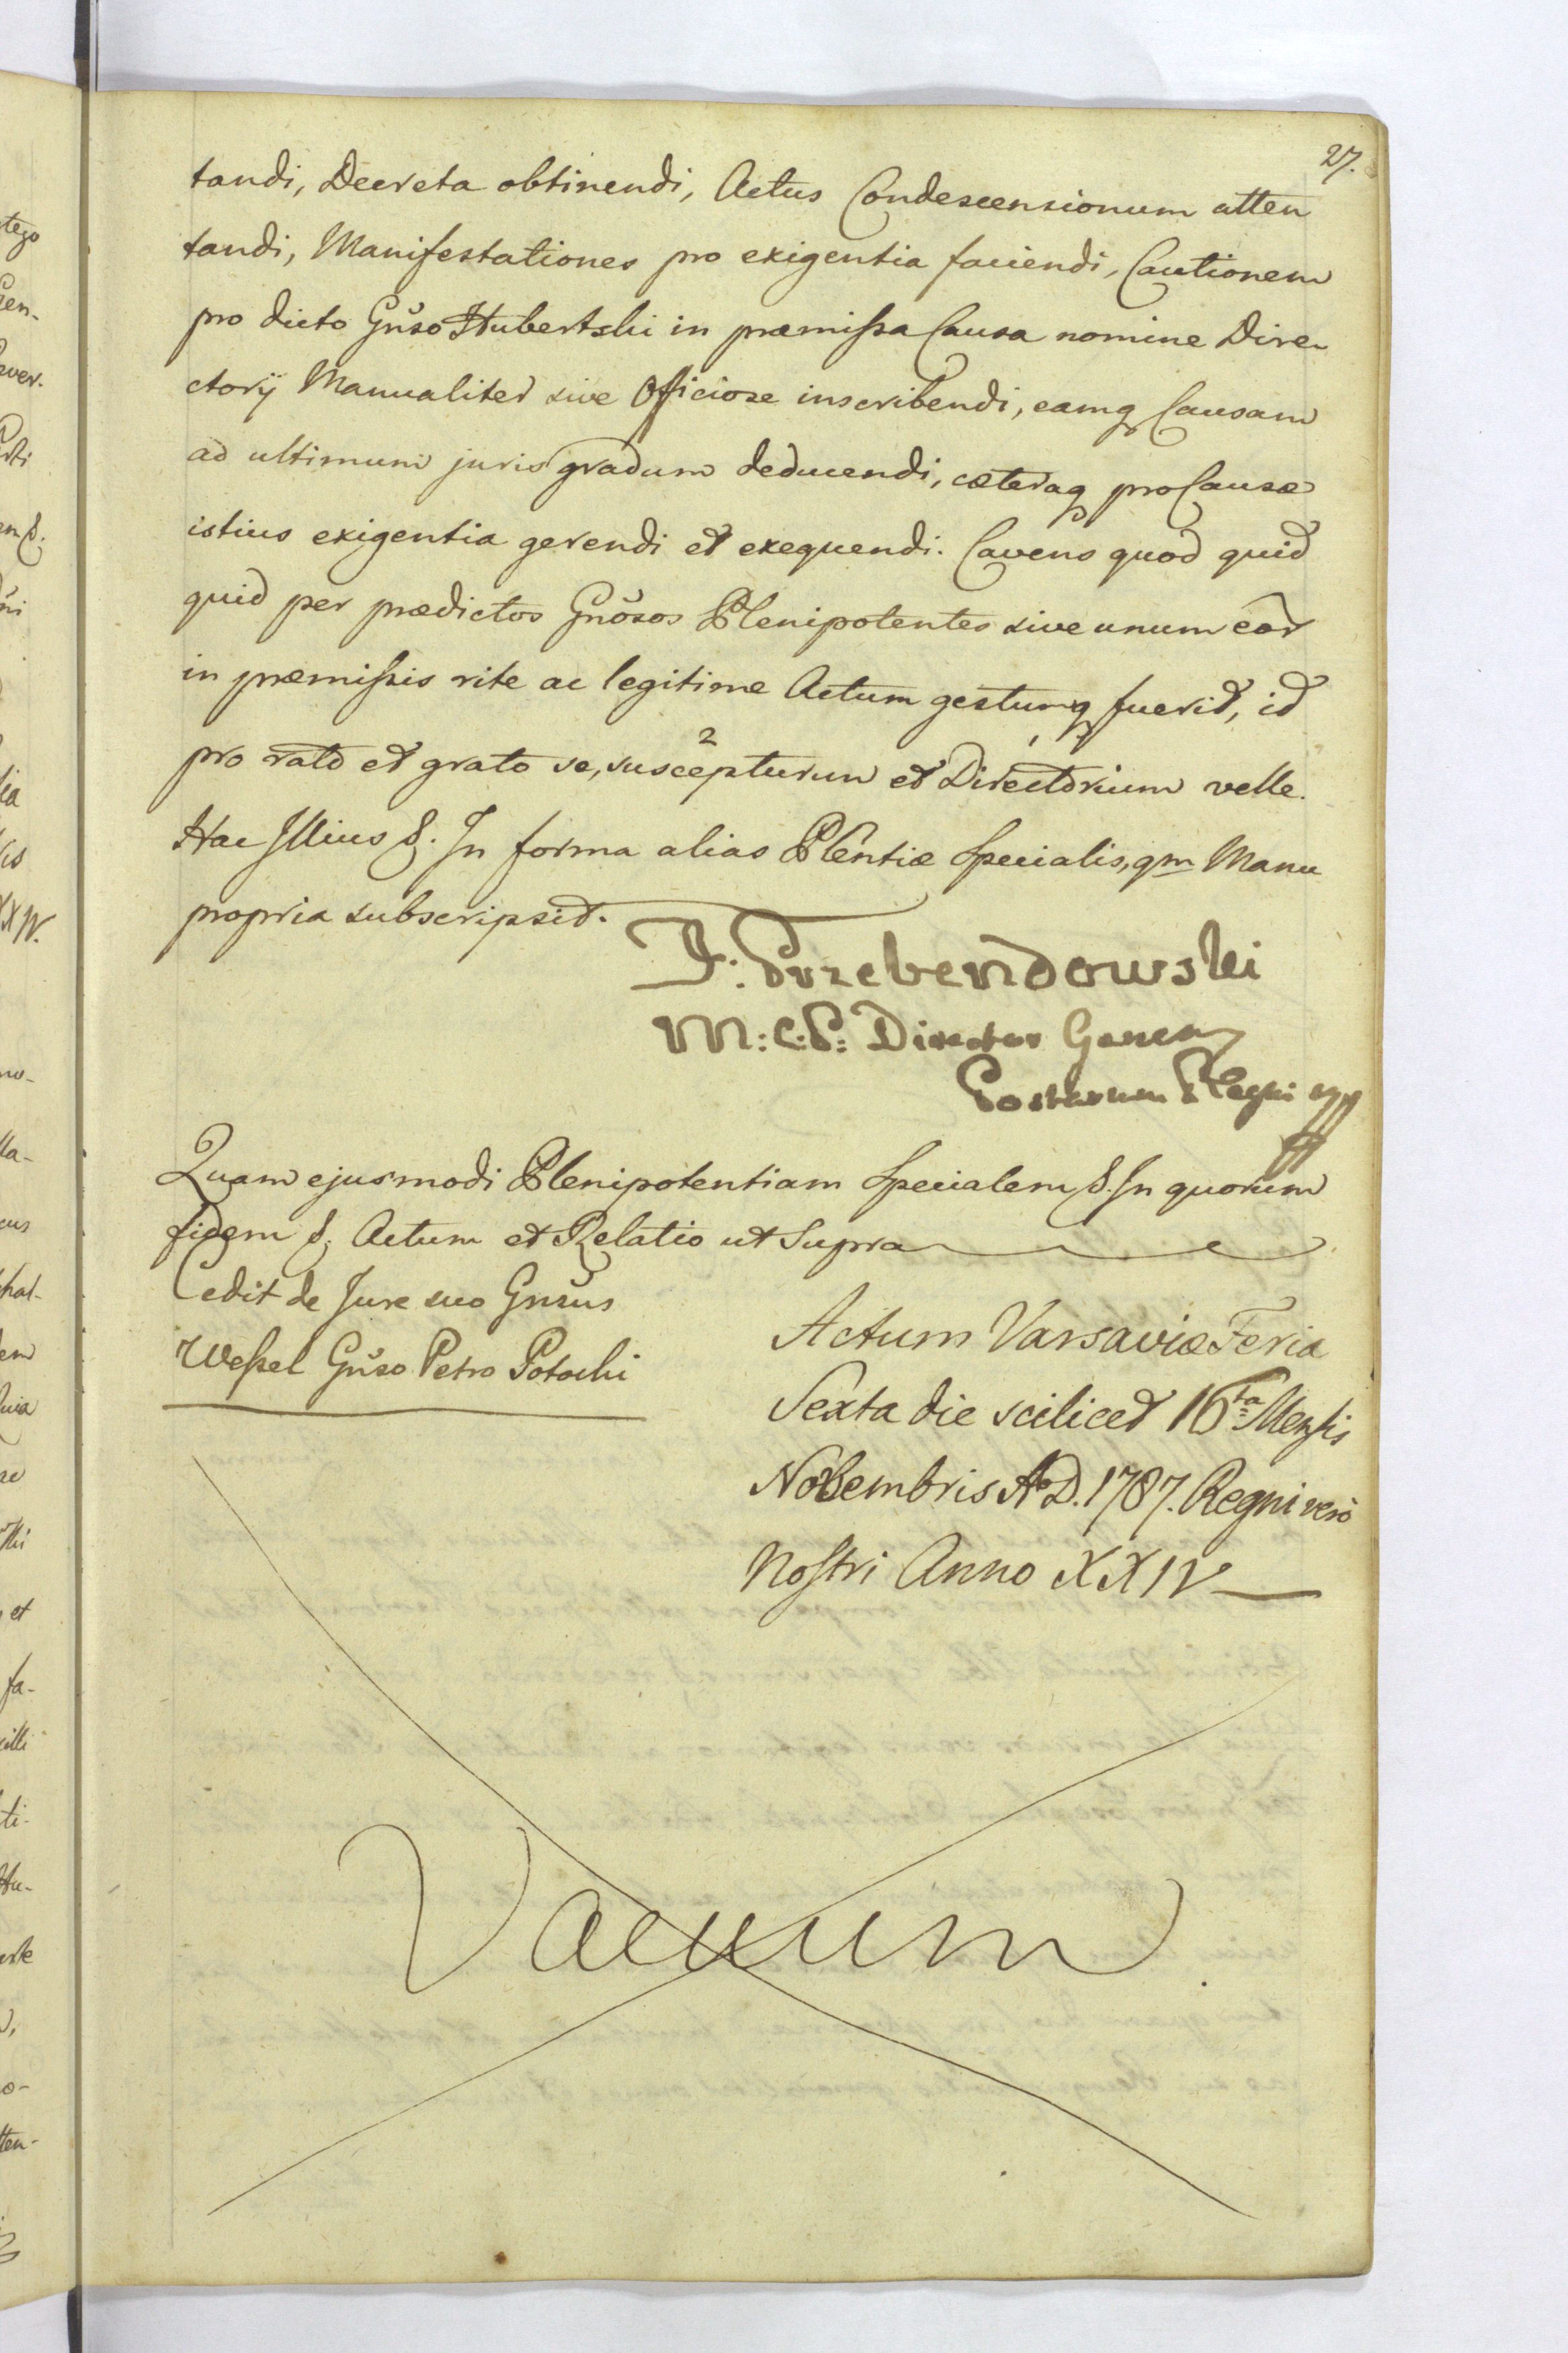 27.
tandi, Decreta obtinendi, Actus Condescensionum atten
tandi, Manifestationes pro exigentia faciendi, Cautionem
pro dicto Gnŭso Hubertski in præmissa Causa nomine Dire-
ctorij Manualiter sive Officiose inscribendi, eamq Causam
ad ultimum juris gradum deducendi, cæteraq pro Causæ
istius exigentia gerendi et exequendi. Cavens quod quid
quid per prædictos Gnŏsos Plenipotentes sive unum eor
in præmissis rite ac legitime Actum gestumq fuerit, id
pro rato et grato se, suscepturum 2 et Directorium 1 velle.
Hac Illius &. In forma alias Plentiæ Specialis, qm Manu
propria subscripsit.
J: Przebendowski
M: C: P: Director Gener
Postarum Regni mp
Quam ejusmodi Plenipotentiam Specialem &. In quorum
fidem &. Actum et Relatio ut Supra
Cedit de Jure suo Gnsŭs
Wessel Gnŭso Petro Potocki
Actum Varsaviæ Feria
Sexta die scilicet 16ta Mensis
Novembris A. D. 1787. Regni verò
Nostri Anno XXIV
Vacuum.